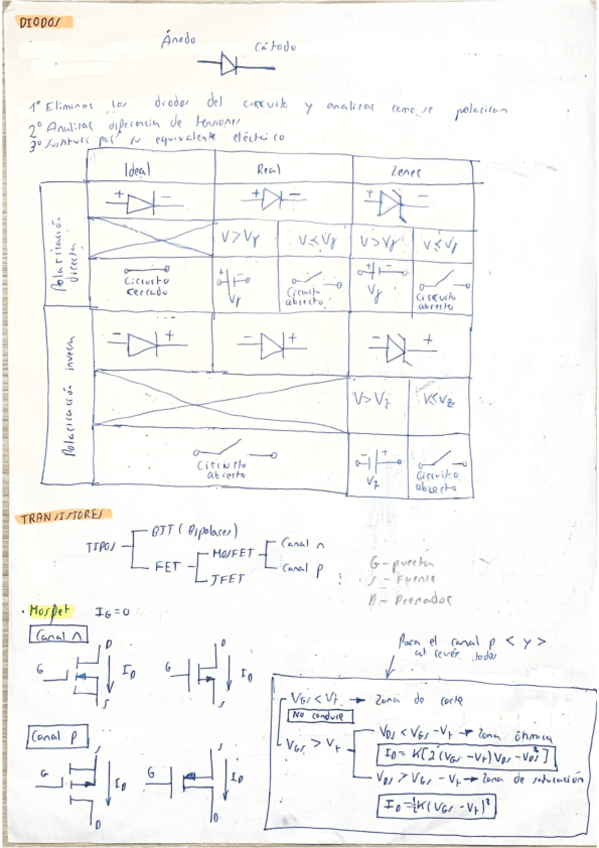 DIODOS
Ánodo
Cátodo
1º Eliminas los diodos del circuito y analizas como se polarizan
2º Analizas diferencia de tensiones
3º Sustituir por su equivalente eléctrico
Ideal Real Zener
Polarización directa
+ − + − + −
V>Vγ V≤Vγ V>Vγ V≤Vγ
Circuito cerrado
+ −
Vγ
Circuito abierto
+ −
Vγ
Circuito abierto
Polarización inversa
− + − + − +
V>Vz V≤Vz
Circuito abierto
− +
Vz
Circuito abierto
TRANSISTORES
TIPOS
BJT (Bipolares)
FET
MOSFET
JFET
Canal n
Canal p
G - puerta
S - Fuente
D - Drenador
· Mosfet IG = 0
Canal n
G D S ID
G D S ID
Canal p
G S D ID
G S D ID
Para el canal p < y >
al revés todos
VGS < Vt → Zona de corte
No conduce
VGS > Vt
VDS < VGS - Vt → Zona óhmica
ID = K[2(VGS - Vt)VDS - VDS²]
VDS > VGS - Vt → Zona de saturación
ID = ½K(VGS - Vt)²